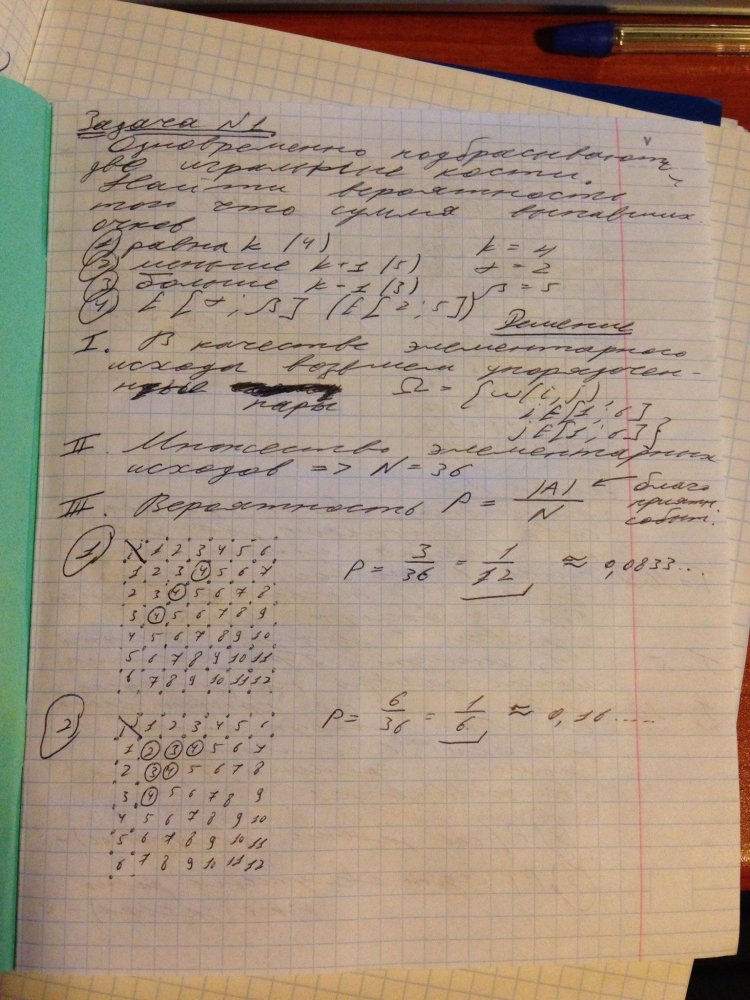 Задача N1
Одновременно подбрасывают
две игральные кости.
Найти вероятность
того что сумма выпавших
очков
1 равна k (4) k = 4
2 меньше k+1 (5) α = 2
3 больше k-1 (3) β = 5
4 ∈ [α; β] (∈[2; 5])
Решение
I. В качестве элементарного
исхода возьмем упорядочен-
ные пары Ω = {ω(i, j),
i ∈ [1; 6]
j ∈ [1; 6]}
II. Множество элементарных
исходов => N = 36
III. Вероятность P = |A|/N ← благо
приятн.
событ.
1 P = 3/36 = 1/12 ≈ 0,0833...
1 2 3 4 5 6
1 2 3 4 5 6 7
2 3 4 5 6 7 8
3 4 5 6 7 8 9
4 5 6 7 8 9 10
5 6 7 8 9 10 11
6 7 8 9 10 11 12
2 P = 6/36 = 1/6 ≈ 0,16.....
1 2 3 4 5 6
1 2 3 4 5 6 7
2 3 4 5 6 7 8
3 4 5 6 7 8 9
4 5 6 7 8 9 10
5 6 7 8 9 10 11
6 7 8 9 10 11 12